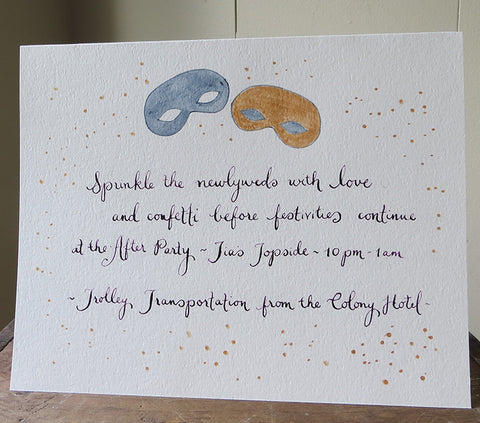 Sprinkle the newlyweds with love
and confetti before festivities continue
at the After Party ~ Tia's Topside ~ 10 pm - 1 am
~ Trolley Transportation from the Colony Hotel ~